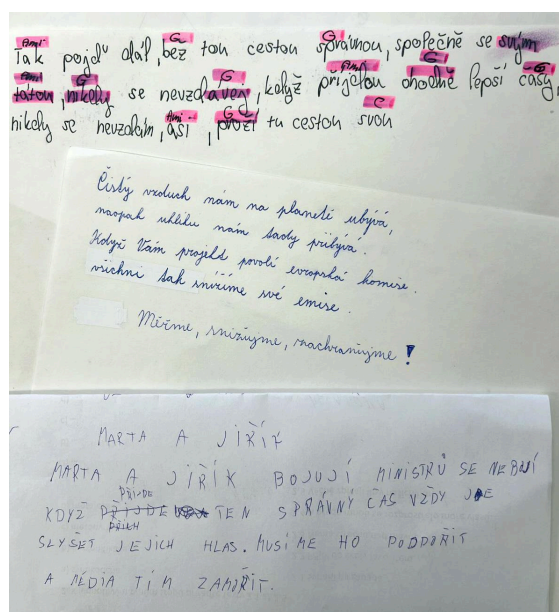 Ami G G Ami
Tak pojdu dál, bez tou cestou správnou, společně se svým
Ami G G Ami C G
tátou, nikdy se nevzdávej, když přijdou ohodně lepší časy,
Ami G C
nikdy se nevzdám, asi, proží tu cestou svou
Čistý vzduch nám na planetě ubývá,
naopak uhlíku nám tady přibývá.
Když Vám projekt povolí evropská komise.
všichni tak snížíme své emise.
Měřme, snižujme, zachraňujme!
MARTA A JIŘÍK
MARTA A JIŘÍK BOJUJÍ MINISTRŮ SE NEBOJÍ
PŘIJDE
KDYŽ PŘIJDE TEN SPRÁVNÝ ČAS VŽDY JDE
PŘICH
SLYŠET JEJICH HLAS. MUSÍME HO PODPOŘIT
A MÉDIA TÍM ZAMOŘIT.